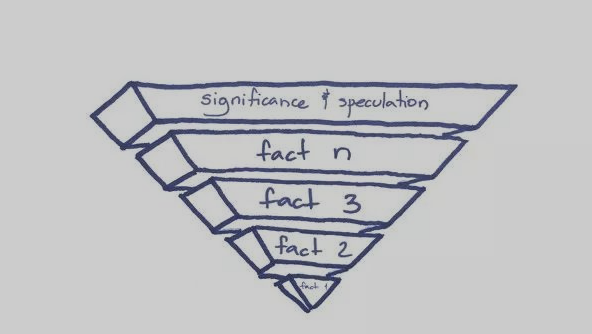 significance & speculation
fact n
fact 3
fact 2
fact 1